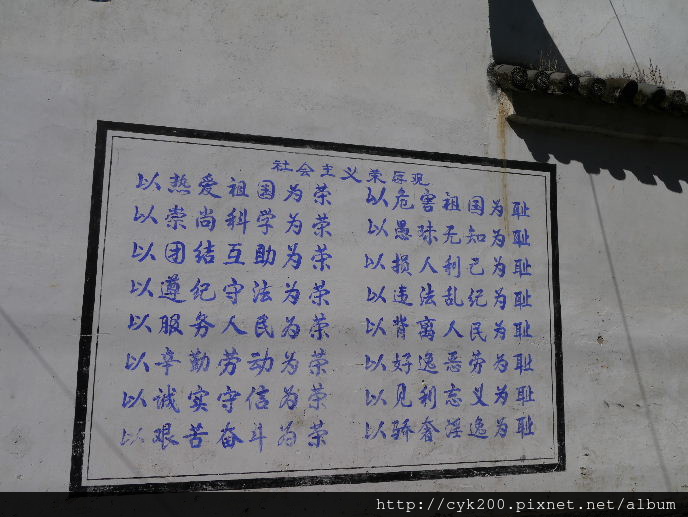 社会主义荣辱观
以热爱祖国为荣 以危害祖国为耻
以崇尚科学为荣 以愚昧无知为耻
以团结互助为荣 以损人利己为耻
以遵纪守法为荣 以违法乱纪为耻
以服务人民为荣 以背离人民为耻
以辛勤劳动为荣 以好逸恶劳为耻
以诚实守信为荣 以见利忘义为耻
以艰苦奋斗为荣 以骄奢淫逸为耻
http://cyk200.pixnet.net/album